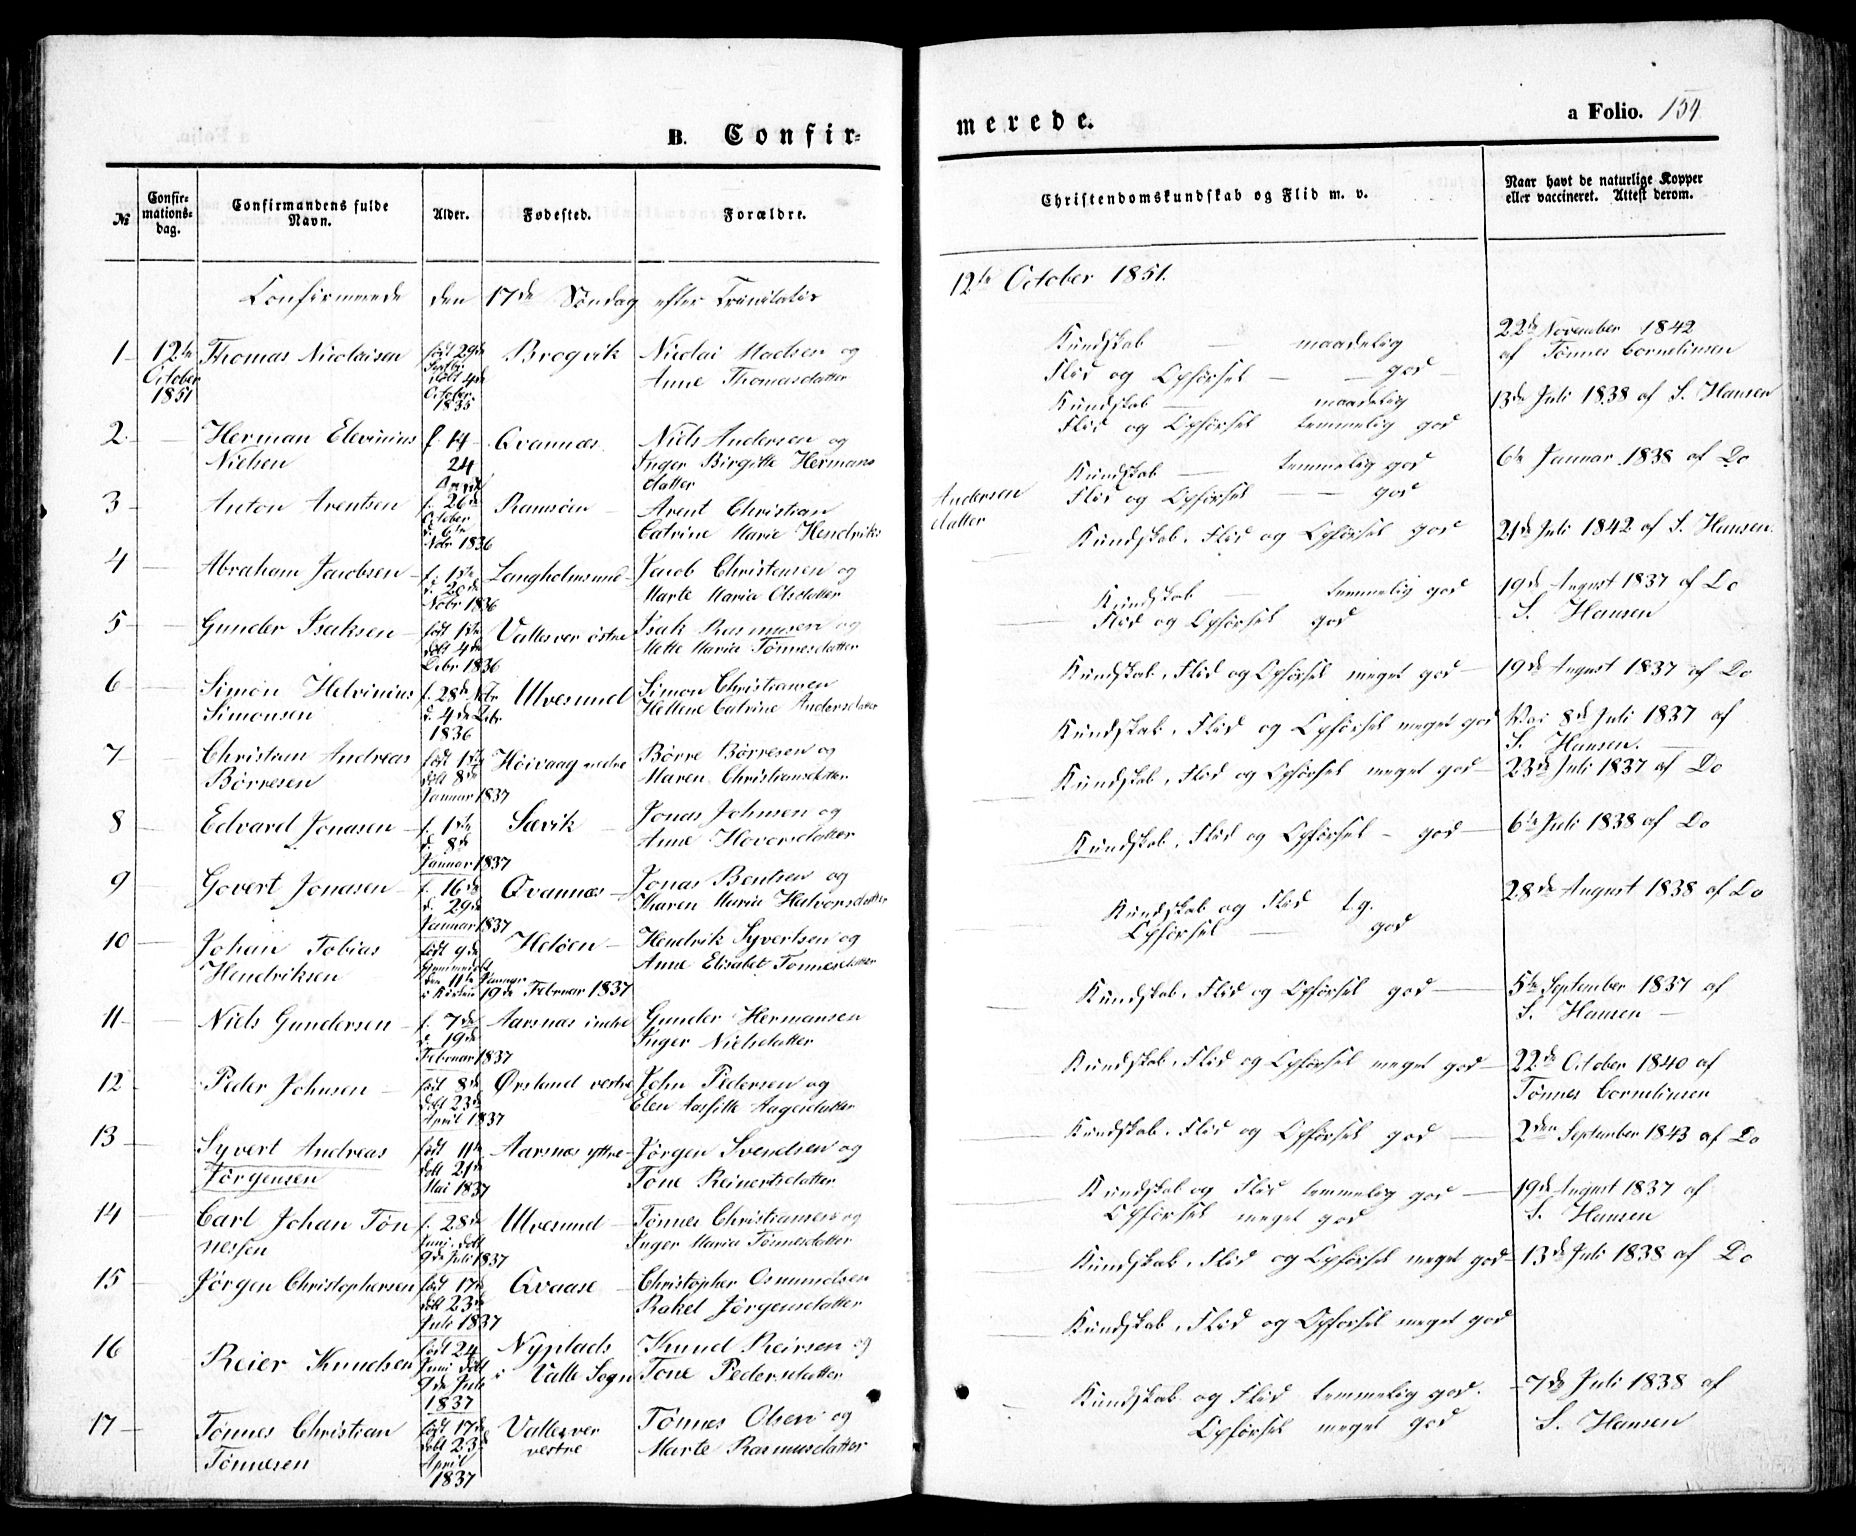 B. Confir-
№
Confir-
mations-
dag.
Confirmandens fulde
Navn.
Alder.
Fødested.
Forældre.
Confirmerede den 17de Søndag efter Trinitatis
1 12te Thomas Nicolaisen født 29de Brogvik Nicolai Madsen og
October Septbr døbt 4de Anne Thomasdatter
1851 October 1835
2 Herman Elevinius f. 14 Qvannæs Niels Andersen og
Nielsen 24 Inger Birgitte Hermans
datter
3 Anton Arentsen f. 26de Ramsøen Arent Christian
October d. 6te Catrine Marie Hendriks
Nobr 1836
4 Abraham Jacobsen f. 1ste Langholmsund Jacob Christensen og
d. 20de Marte Maria Olsdatter
Nobr 1836
5 Gunder Isaksen født 1ste Vallesver østre Isak Rasmusen og
døbt 4de Mette Maria Tønnesdatter
Debr 1836
6 Simon Helvinius f. 28de Nobr Ulvesund Simon Christiansen
Simonsen d. 4de Debr Hellene Catrine Andersdatter
1836
7 Christian Andreas født 1ste Høivaag nedre Børre Børresen og
Børresen døbt 8de Maren Christiansdatter
Januar 1837
8 Edvard Jonasen f. 1ste Sævik Jonas Johnsen og
d. 8de Anne Hoversdatter
Januar 1837
9 Govert Jonasen f. 16de Qvannæs Jonas Bentsen og
d. 29de Karen Maria Halvorsdatter
Januar 1837
10 Johan Tobias født 9de Heløen Hendrik Syvertsen og
Hendriksen den 11te Januar Anne Elisabet Tønnesdatter
i Kirken 19de Februar 1837
11 Niels Gundersen f. 7de Aarsnæs indre Gunder Hermansen
d. 19de Inger Nielsdatter
Februar 1837
12 Peder Johnsen født 8de Ørsland vestre John Pedersen og
døbt 23de Elen Aasfitte Aagesdatter
April 1837
13 Syvert Andreas født 11te Aarsnæs yttre Jørgen Svendsen og
Jørgensen døbt 21de Tone Reinertsdatter
Mai 1837
14 Carl Johan Tøn f. 28de Ulvesund Tønnes Christiansen og
nessen Juni døbt Inger Maria Tønnesdatter
9de Juli 1837
15 Jørgen Christophersen født 17de Qvaase Christopher Osmundsen
døbt 23de Rakel Jørgensdatter
Juli 1837
16 Reier Knudsen født 24 Nyplads Knud Reirsen og
Juni døbt i Valle Sogn Tone Pedersdatter
9de Juli
1837
17 Tønnes Christian født 17de Vallesver Tønnes Olsen og
Tønnesen døbt 23de vestre Marte Rasmusdatter
April
1837
merede.
a Folio. 154
Christendomskundskab og Flid m. v.
Naar havt de naturlige Kopper
eller vaccineret. Attest derom.
12te October 1851.
Kundskab — maadelig 22de November 1842
Flid og Opførsel — god af Tønnes Cornelinsen
Kundskab — maadelig 13de Juli 1838 af S. Hansen
Flid og Opførsel temmelig god
Kundskab — temmelig god 6te Januar 1838 af Do
Andersen Flid og Opførsel — god
datter
Kundskab, Flid og Opførsel god 21de Juli 1842 af S. Hansen.
Kundskab — temmelig god 19de August 1837 af Do
Flid og Opførsel god S. Hansen
Kundskab, Flid og Opførsel meget god 19de August 1837 af Do
Kundskab, Flid og Opførsel meget god 8de Juli 1837 af
S. Hansen.
Kundskab, Flid og Opførsel meget god 23de Juli 1837 af Do
Kundskab, Flid og Opførsel — god 6te Juli 1838 af Do
Kundskab og Flid t. g. 28de August 1838 af Do
Opførsel — god
Kundskab, Flid og Opførsel god 5te September 1837 af
S. Hansen
Kundskab, Flid og Opførsel meget god 22de October 1840 af
Tønnes Cornelinsen
Kundskab, Flid og Opførsel god 2den September 1843 af Do
Kundskab og Flid temmelig god 19de August 1837 af
Opførsel meget god S. Hansen
Kundskab, Flid og Opførsel meget god 13de Juli 1838 af Do
Kundskab, Flid og Opførsel meget god
Kundskab og Flid temmelig god. 7de Juli 1838 af
Opførsel meget god S. Hansen